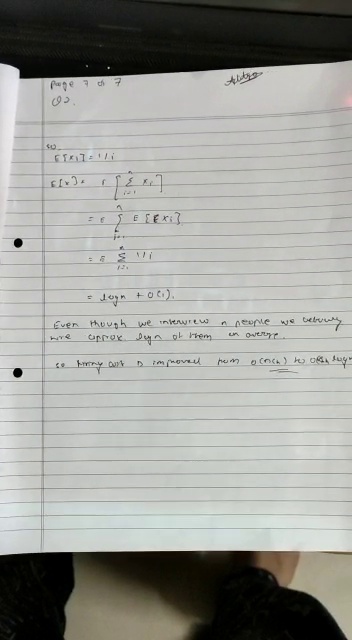 Page 7 of 7
Q2.
so,
E[xi] = 1/i
E[x] = E [ n Σ i=1 xi ]
= E n ∫ i=1 E[Exi]
= E n Σ i=1 1/i
= logn + O(1).
Even though we interview n people we
hire approx. logn of them on average.
so hiring cost is improved from O(nCh) to logn